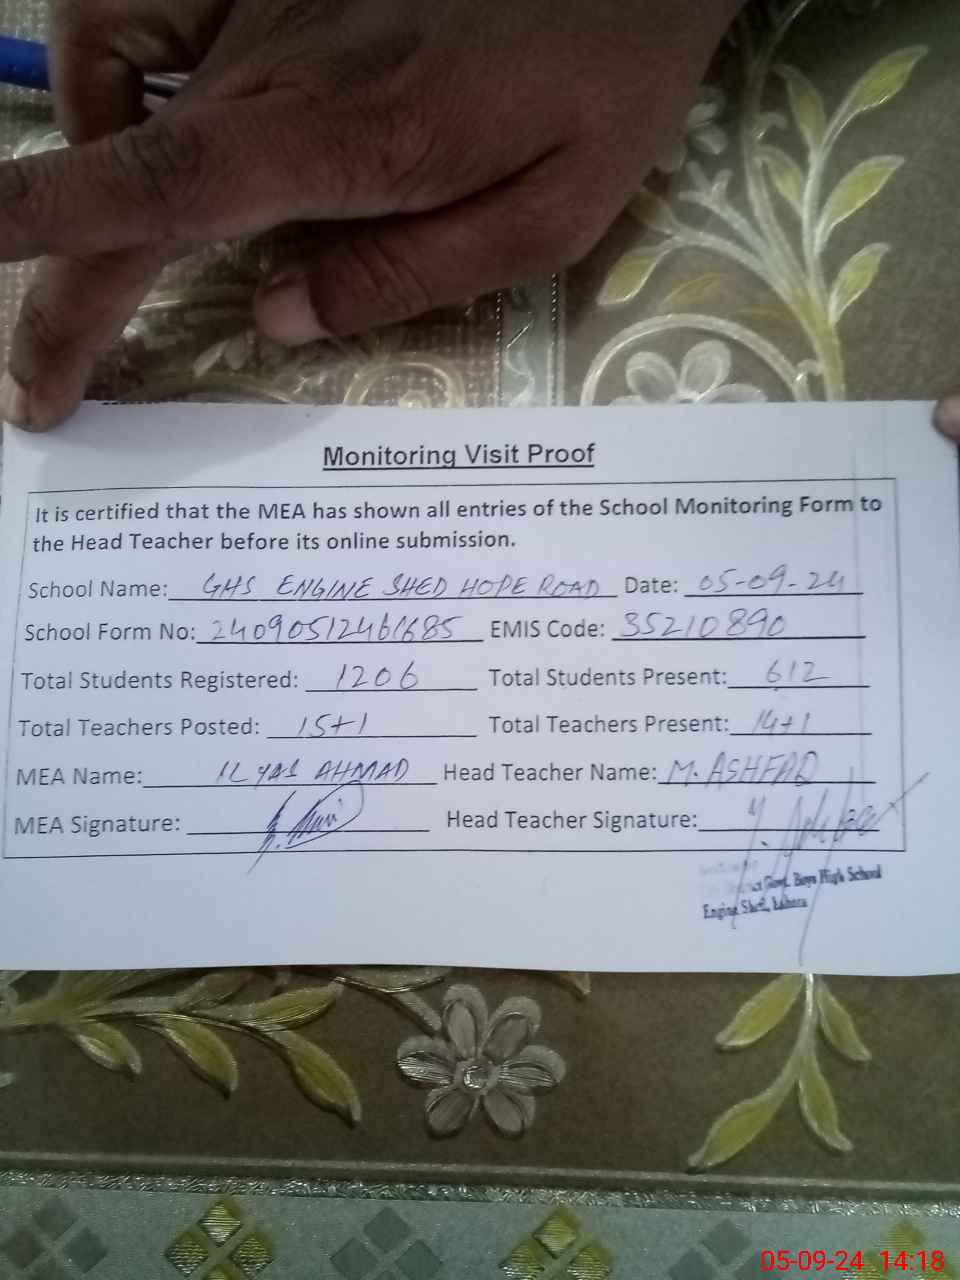 Monitoring Visit Proof
It is certified that the MEA has shown all entries of the School Monitoring Form to
the Head Teacher before its online submission.
School Name: GHS ENGINE SHED HOPE ROAD Date: 05-09-24
School Form No: EMIS Code: 35210890
Total Students Registered: 1206 Total Students Present: 612
Total Teachers Posted: 15+1 Total Teachers Present: 14+1
MEA Name: ILYAS AHMAD Head Teacher Name: M. ASHFAQ
MEA Signature: Head Teacher Signature:
Govt. Boys High School
Engine Shed, Lahore
05-09-24 14:18